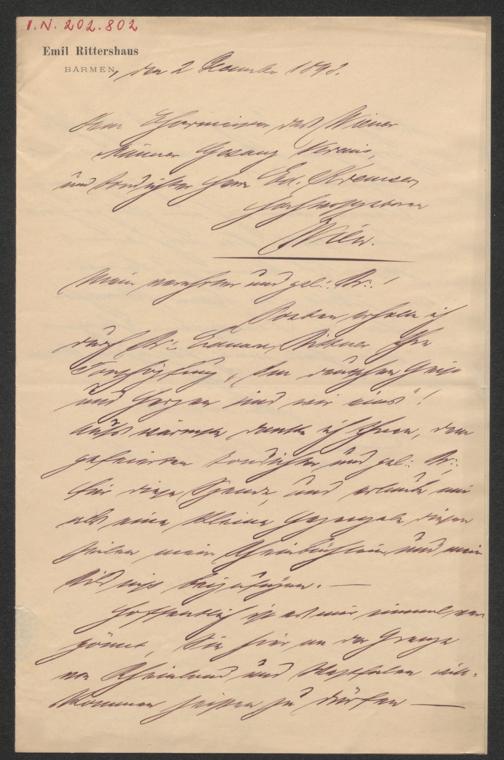 I.N. 202.802
Emil Rittershaus
BARMEN, den 2 December 1893.
Dem Chormeister des Wiener
Männer Gesang Verein,
und Tondichter Herrn Ed. Kremser
Hochwohlgeboren
Wien.
Mein verehrter und gel: Br: !
Soeben erhalte ich
durch Br: Ihre
Tonschöpfung, "Im deutschen Geist
und Herzen sind wir eins"!
danke ich Ihnen, dem
gefeierten Tondichter und gel: Br:
für diese Spende, und erlaube mir
als eine kleine Gegengabe diesen
Zeilen mein und mein
Bild beizufügen. —
Hoffentlich ist es mir einmal ver-
gönnt, Sie hier an der Grenze
von Rheinland und Westfalen will-
kommen heißen zu dürfen —